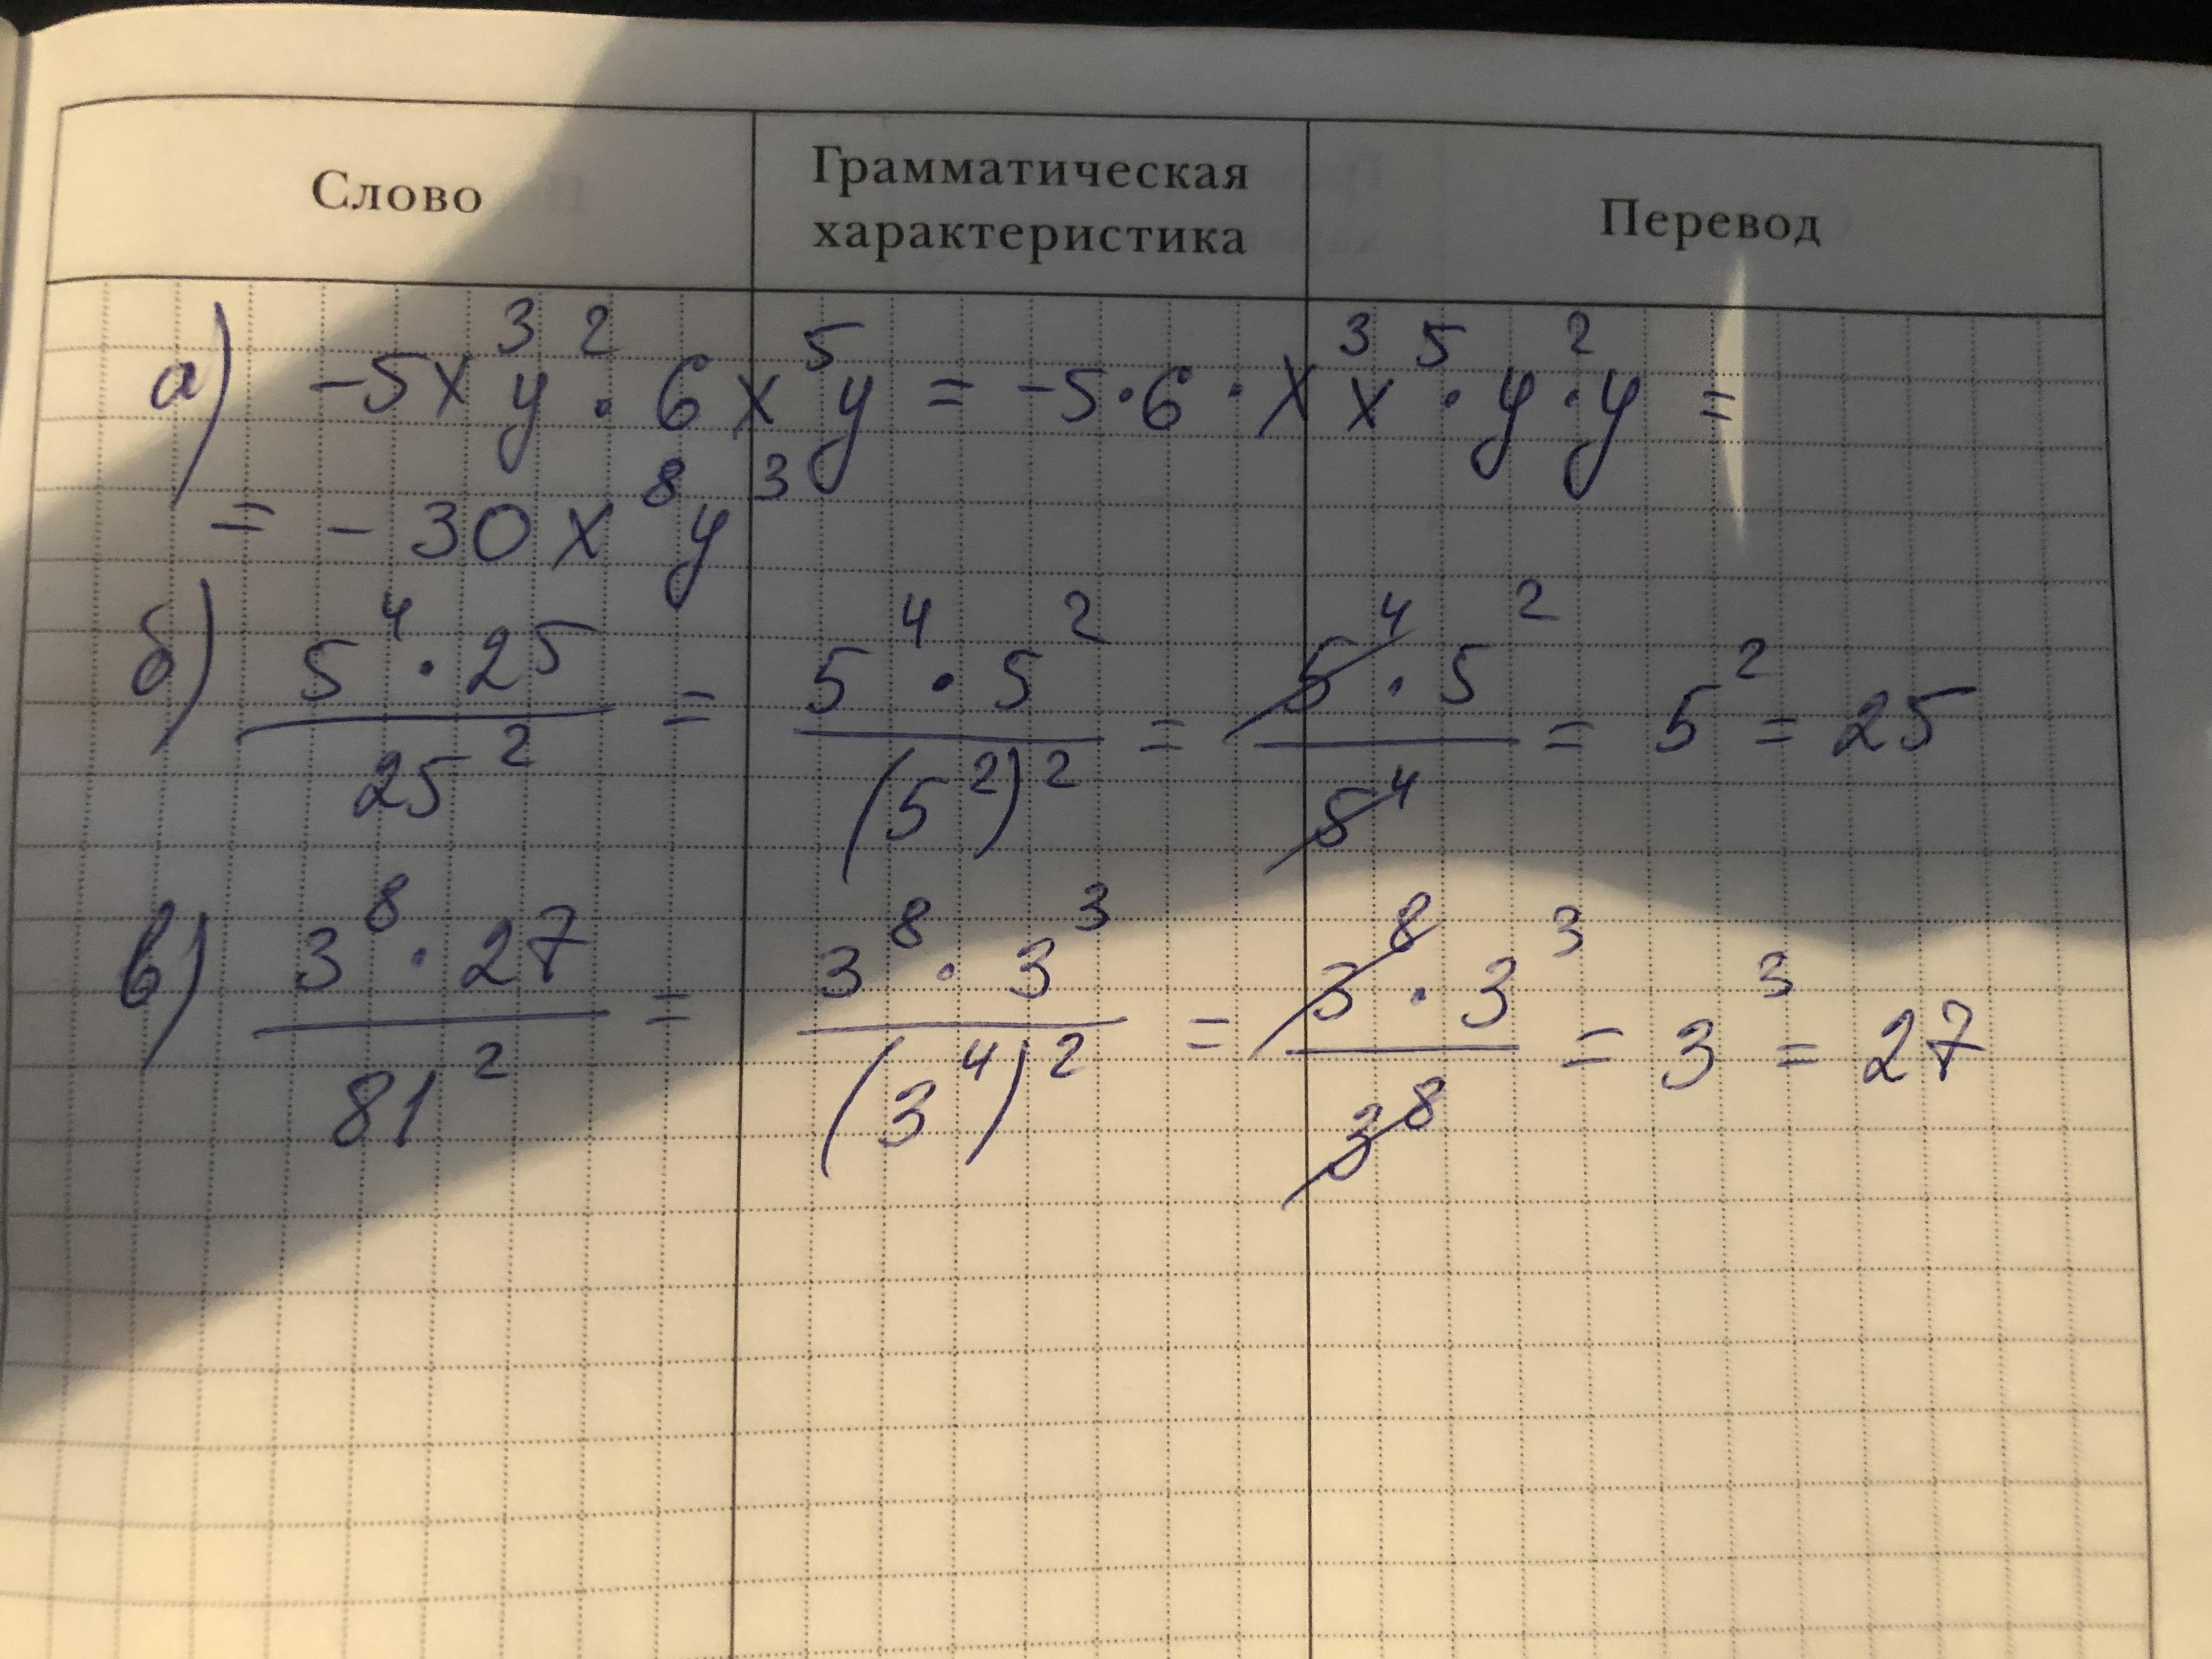 Слово Грамматическая характеристика Перевод
а) -5x³y² · 6x⁵y = -5·6 · x³x⁵ · y²·y =
= -30x⁸y³
б) (5⁴ · 25)/25² = (5⁴ · 5²)/(5²)² = (5⁴ · 5²)/5⁴ = 5² = 25
в) (3⁸ · 27)/81² = (3⁸ · 3³)/(3⁴)² = (3⁸ · 3³)/3⁸ = 3³ = 27